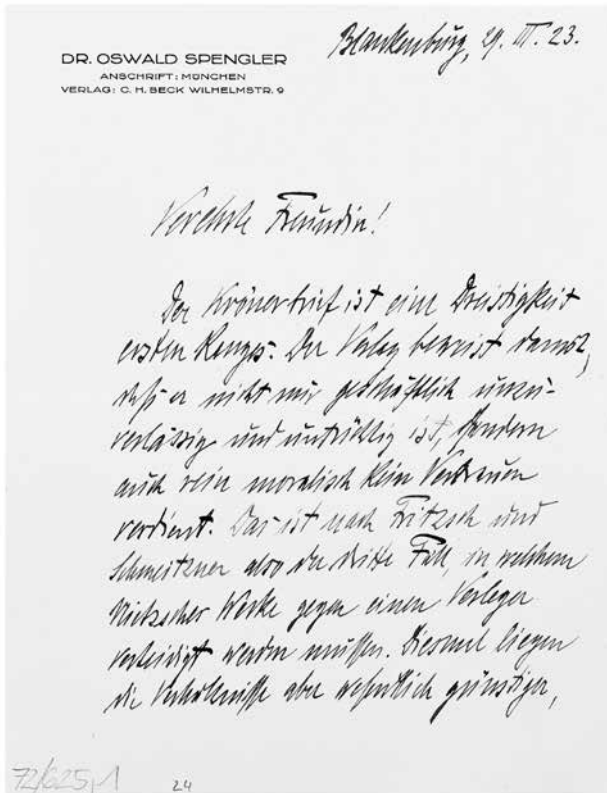 Blankenburg, 29. III. 23.
DR. OSWALD SPENGLER
ANSCHRIFT: MÜNCHEN
VERLAG: C. H. BECK WILHELMSTR. 9
Verehrte Freundin!
Der Krönerbrief ist eine Dreistigkeit
ersten Ranges. Der Verlag beweist damit,
daß er nicht nur geschäftlich unzu-
verlässig und untüchtig ist, sondern
auch rein moralisch kein Vertrauen
verdient. Das ist nach Fritzsch und
Schmeitzner also der dritte Fall, in welchem
Nietzsches Werke gegen einen Verleger
verteidigt werden mussen. Diesmal liegen
die Verhältnisse aber wesentlich günstiger,
72/625,1
24